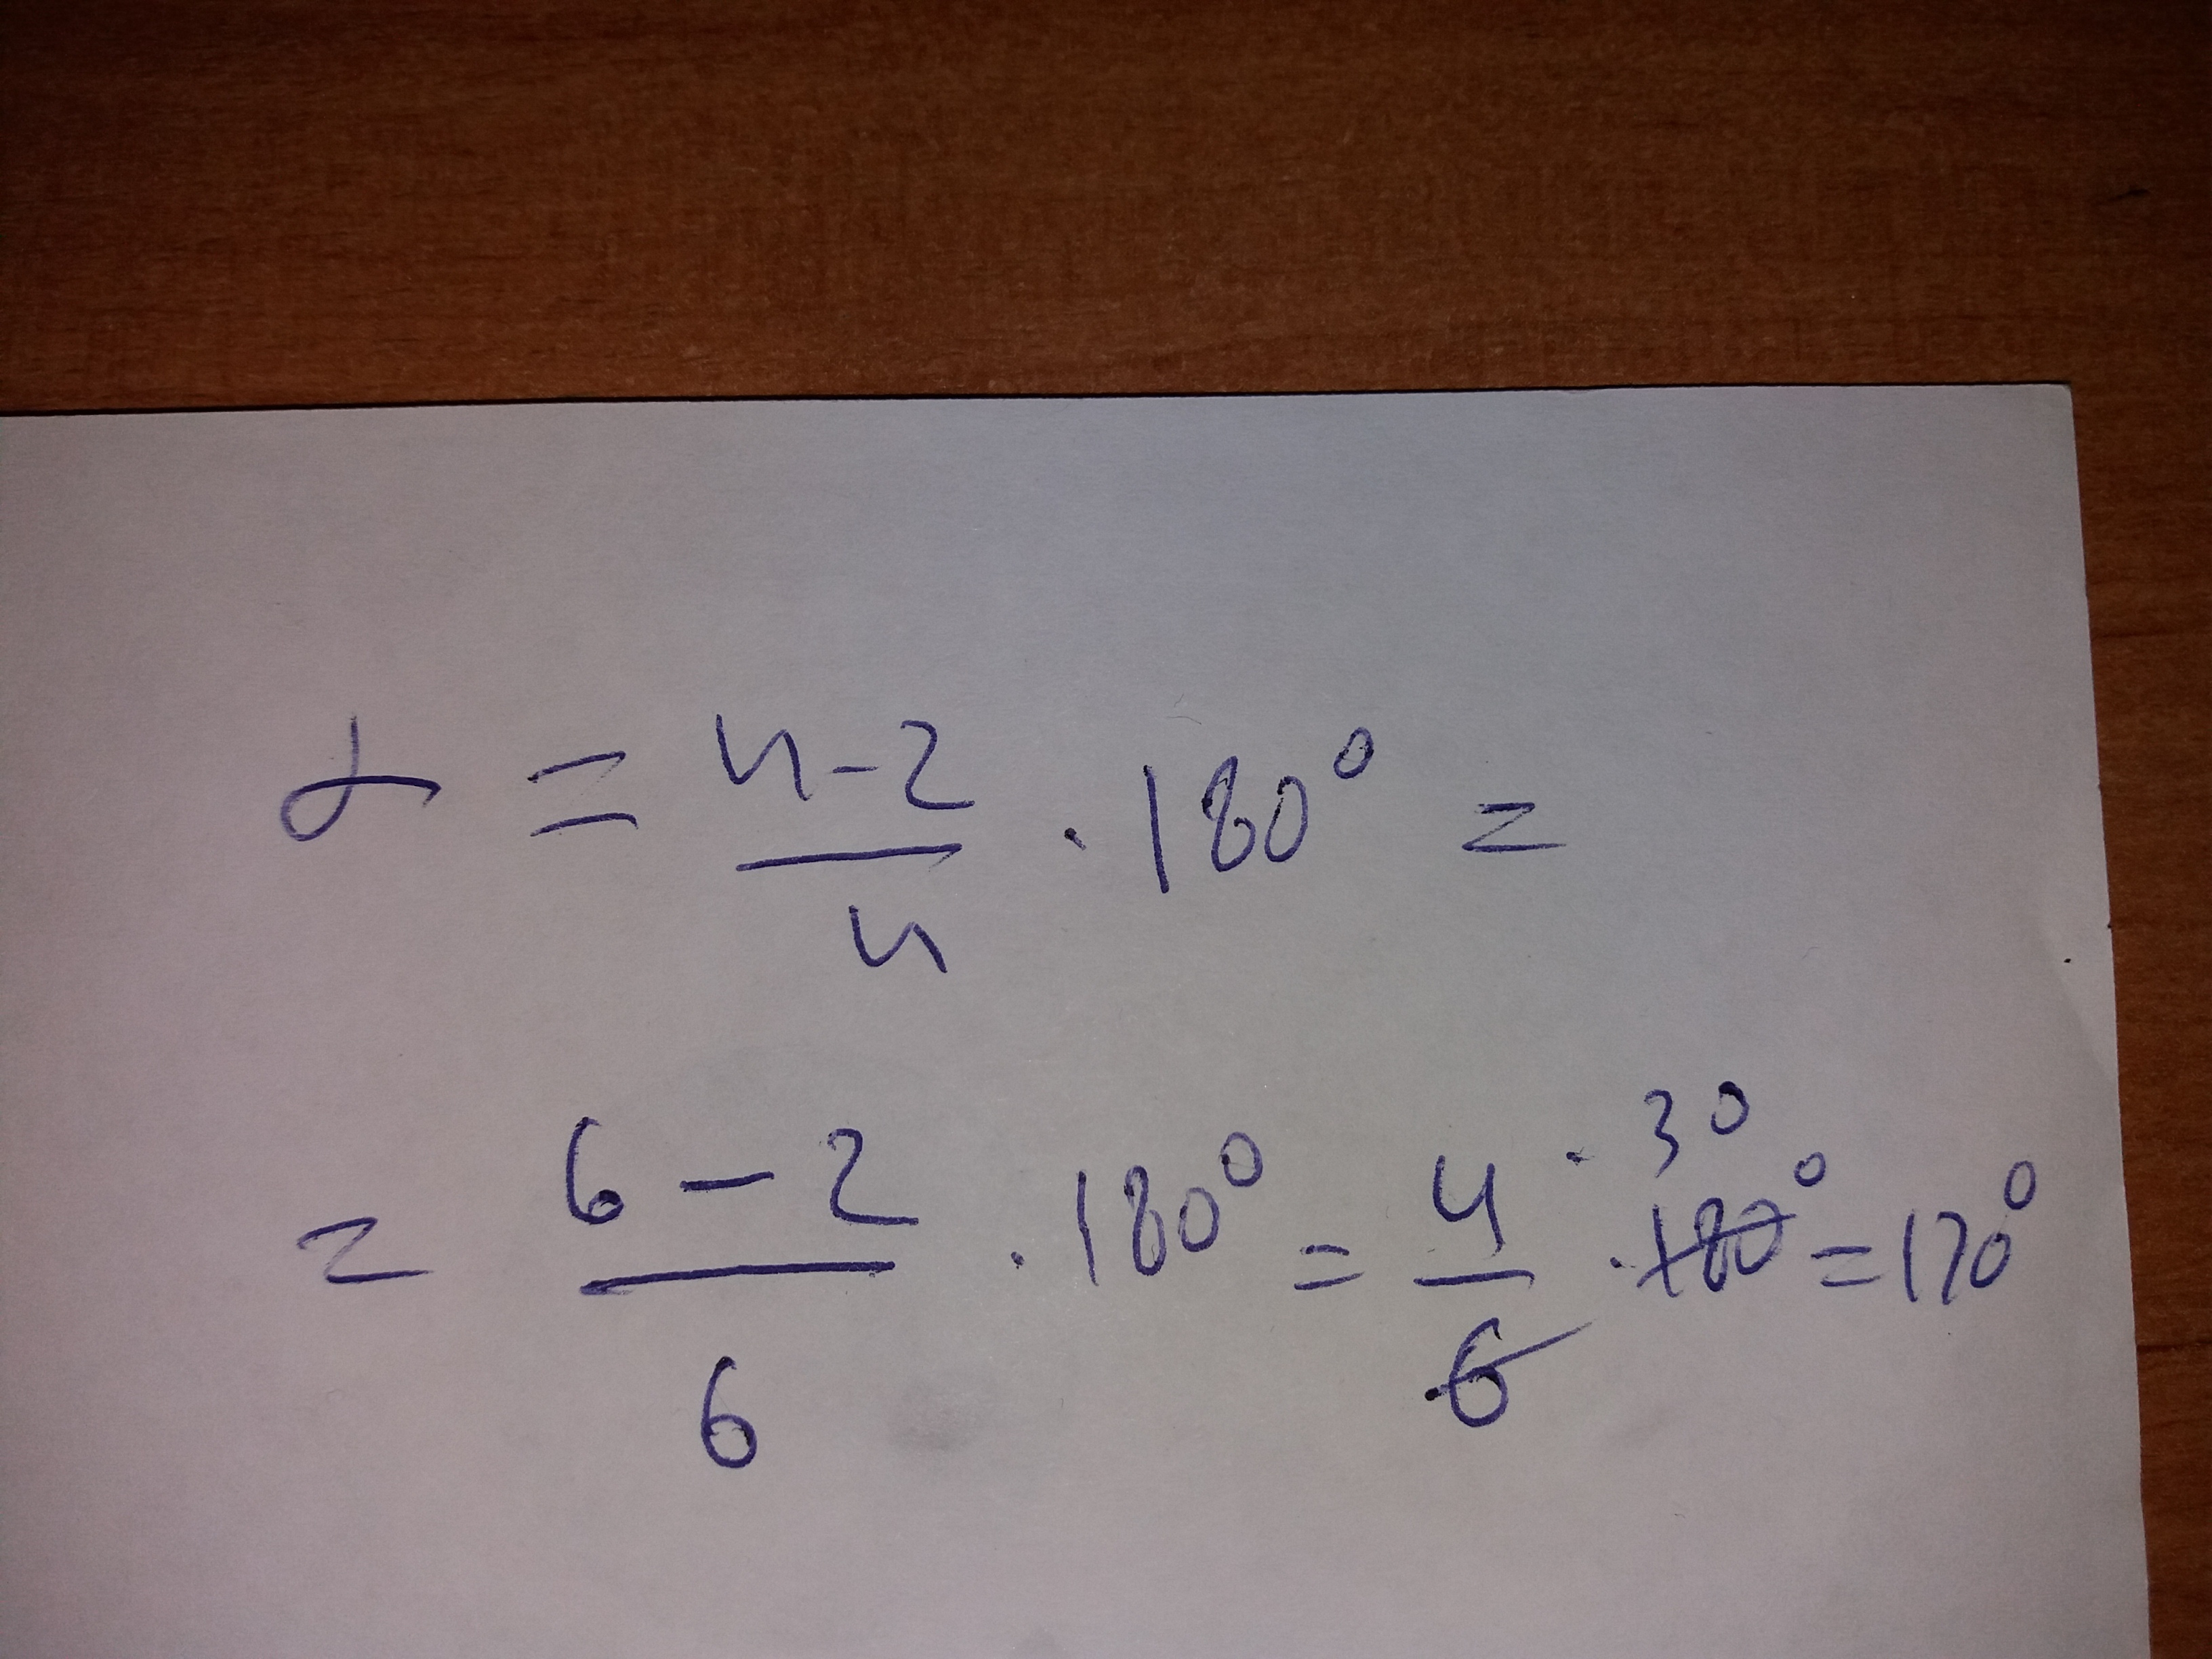 α = n-2/n · 180° =
= 6-2/6 · 180° = 4/6 · 30 · 180° = 120°